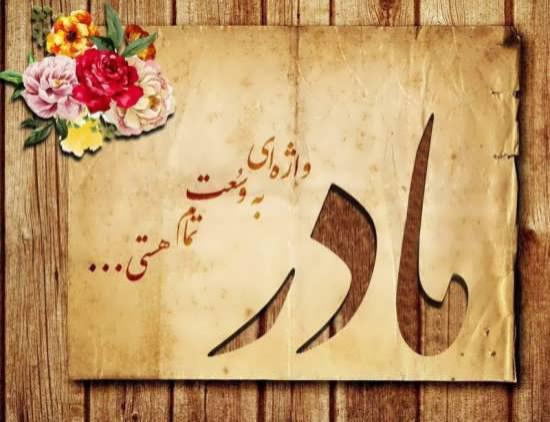 مادر
واژه‌ای
به وُسعت
تمام
هستی...